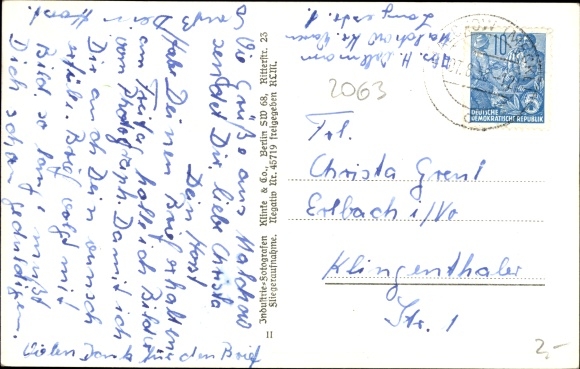 Viele Grüße aus Malchow
sendet Dir, liebe Christa
Dein Horst
Habe Deinen Brief erhalten
am Freitag hole ich Bilder
vom Photograph. Damit ich
Dir auch Dein Wunsch
erfülle. Brief folgt mit
Bild. so lang mußt
Dich schon geduldigen.
Vielen Dank für den Brief
Industrie-Fotografen Klinke & Co., Berlin SW 68, Ritterstr. 23
Fliegeraufnahme. Negativ Nr. 45719 freigegeben RLM.
II
Abs. H.
Malchow Kr. Waren
Langestr.
2063
10
DEUTSCHE
DEMOKRATISCHE REPUBLIK
Frl.
Christa Greul
Erlbach i/Vo
Klingenthaler
Str. 1
2,-